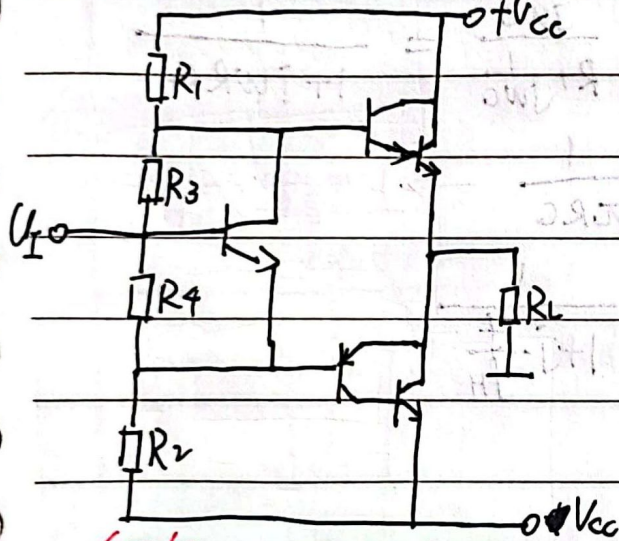 +Vcc
R1
R3
UI
R4
RL
R2
Vcc